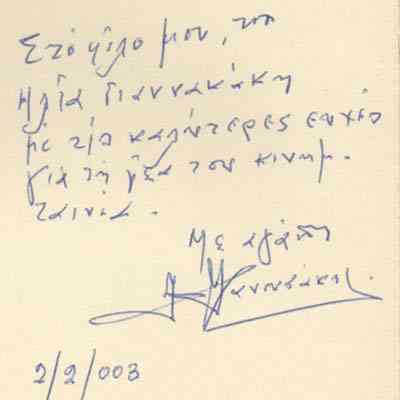 Στό φίλο μου, τον
Ηλία Γιαννακάκη
με τίς καλύτερες ευχές
γιά τη νέα του κινημ.
ταινία.
Με αγάπη
Μανουσάκης
2/2/003